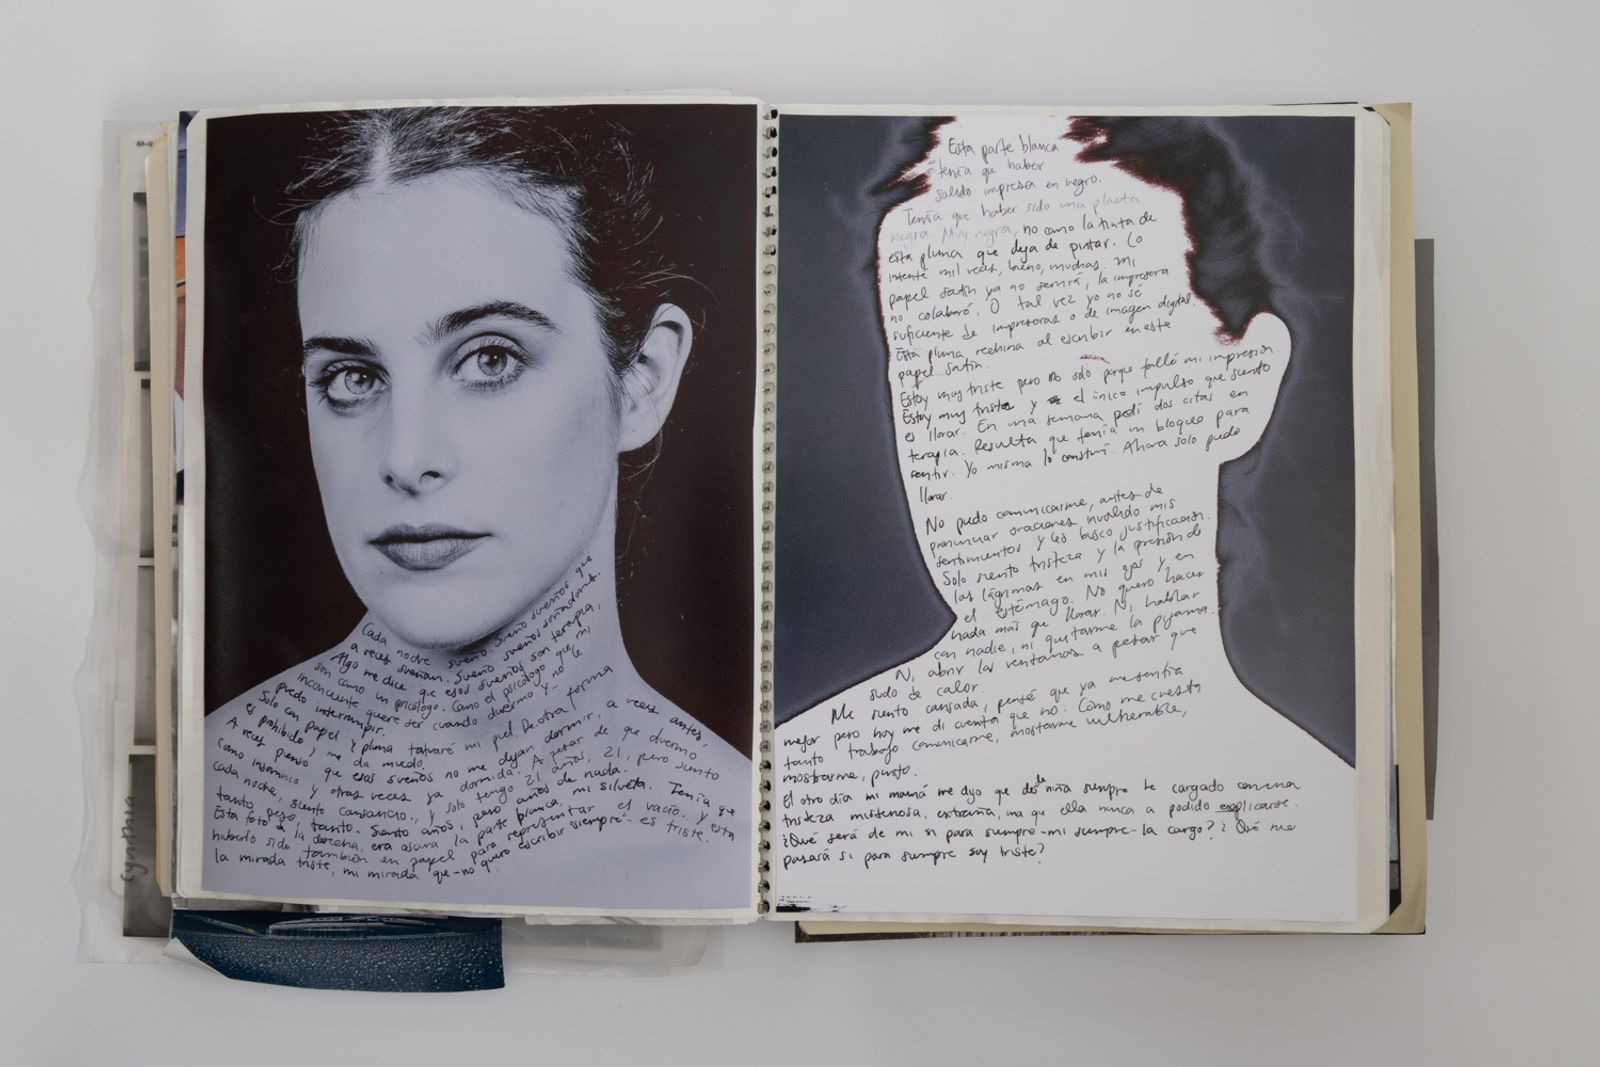 Cada noche sueño. Sueño sueños que
a veces sueñan. Sueño sueños soñadores.
Algo me dice que esos sueños son terapia,
son como un psicólogo. Como el psicólogo que mi
inconciente quiere ser cuando duermo y no le
puedo interrumpir.
Solo con papel y pluma tatuaré mi piel. De otra forma
es prohibido y me da miedo.
A veces pienso que esos sueños no me dejan dormir, a veces antes,
como insomnio y otras veces ya dormida. A pesar de que duermo
cada noche, siento cansancio, y solo tengo 21 años, 21, pero siento
tanto peso, tanto. Siento años, pero años de nada.
Esta foto de la derecha, era oscura la parte blanca, mi silueta. Tenía que
haberlo sido también en papel para representar el vacío. y esta
la mirada triste, mi mirada que -no quiero escribir "siempre"- es triste.
Esta parte blanca
tenía que haber
salido impresa en negro.
Tenía que haber sido una plasta
negra. Muy negra, no como la tinta de
esta pluma que deja de pintar. Lo
intenté mil veces, bueno, muchas. Mi
papel satín ya no servirá, la impresora
no colaboró. O tal vez yo no sé
suficiente de impresoras o de imagen digital.
Esta pluma rechina al escribir en este
papel satín.
Estoy muy triste pero no solo porque falló mi impresión.
Estoy muy triste y el único impulso que siento
es llorar. En una semana pedí dos citas en
terapia. Resulta que tenía un bloqueo para
sentir. Yo misma lo construí. Ahora solo puedo
llorar.
No puedo comunicarme, antes de
pronunciar oraciones invalido mis
sentimientos y les busco justificación.
Solo siento tristeza y la presión de
las lágrimas en mis ojos y en
el estómago. No quiero hacer
nada más que llorar. Ni hablar
con nadie, ni quitarme la pijama.
Ni abrir las ventanas a pesar que
sudo de calor.
Me siento cansada, pensé que ya me sentía
mejor pero hoy me di cuenta que no. Cómo me cuesta
tanto trabajo comunicarme, mostrarme vulnerable,
mostrarme, punto.
El otro día mi mamá me dijo que desde niña siempre he cargado con una
tristeza misteriosa, extraña, una que ella nunca a podido explicarse.
¿Qué será de mi si para siempre -mi siempre- la cargo? ¿Qué me
pasará si para siempre soy triste?
Cynthia